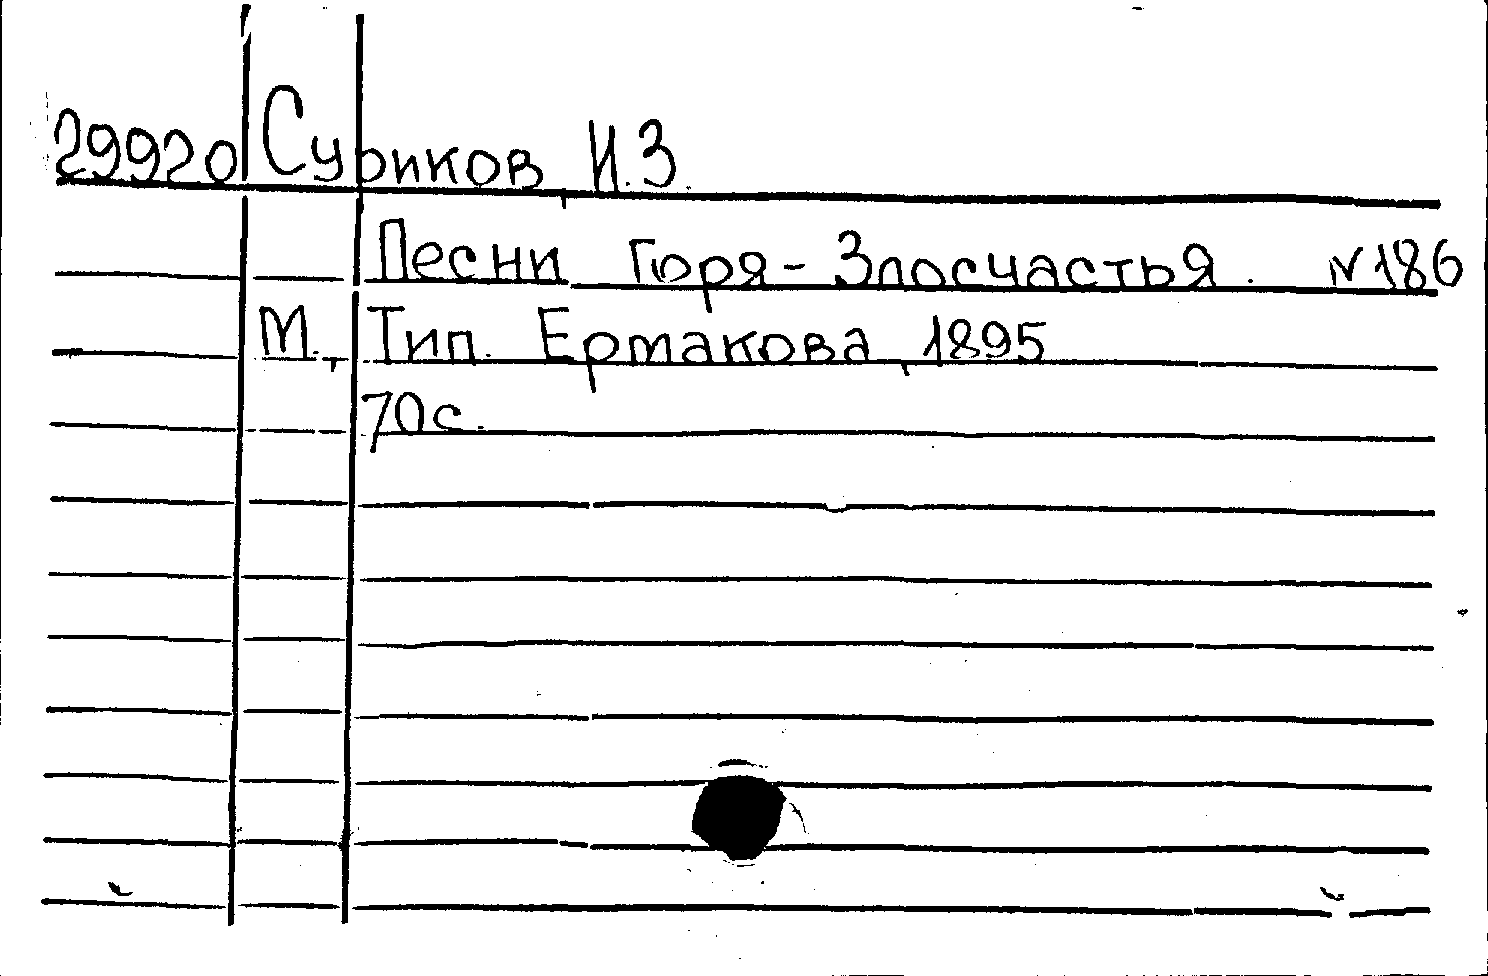 29920 Суриков, И.З.
Песни Горя-Злосчастья. N186
М., Тип. Ермакова, 1895
70с.